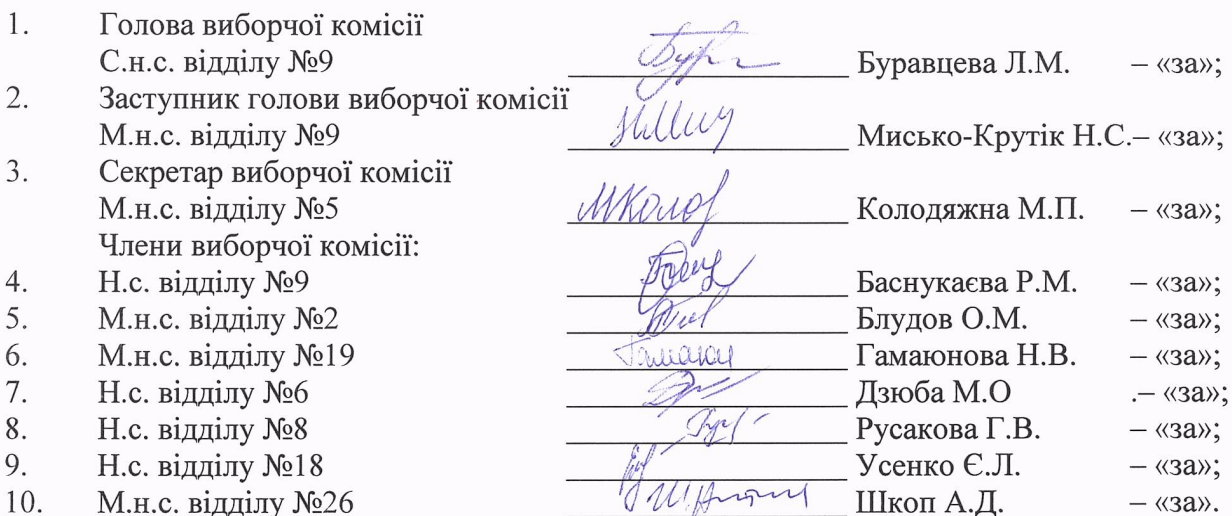 1. Голова виборчої комісії
С.н.с. відділу №9 Буравцева Л.М. – «за»;
2. Заступник голови виборчої комісії
М.н.с. відділу №9 Мисько-Крутік Н.С.– «за»;
3. Секретар виборчої комісії
М.н.с. відділу №5 МКолод Колодяжна М.П. – «за»;
Члени виборчої комісії:
4. Н.с. відділу №9 Баснукаєва Р.М. – «за»;
5. М.н.с. відділу №2 Блудов О.М. – «за»;
6. М.н.с. відділу №19 Гамаюнова Н.В. – «за»;
7. Н.с. відділу №6 Дзюба М.О .– «за»;
8. Н.с. відділу №8 Русакова Г.В. – «за»;
9. Н.с. відділу №18 Усенко Є.Л. – «за»;
10. М.н.с. відділу №26 Шкоп А.Д. – «за».